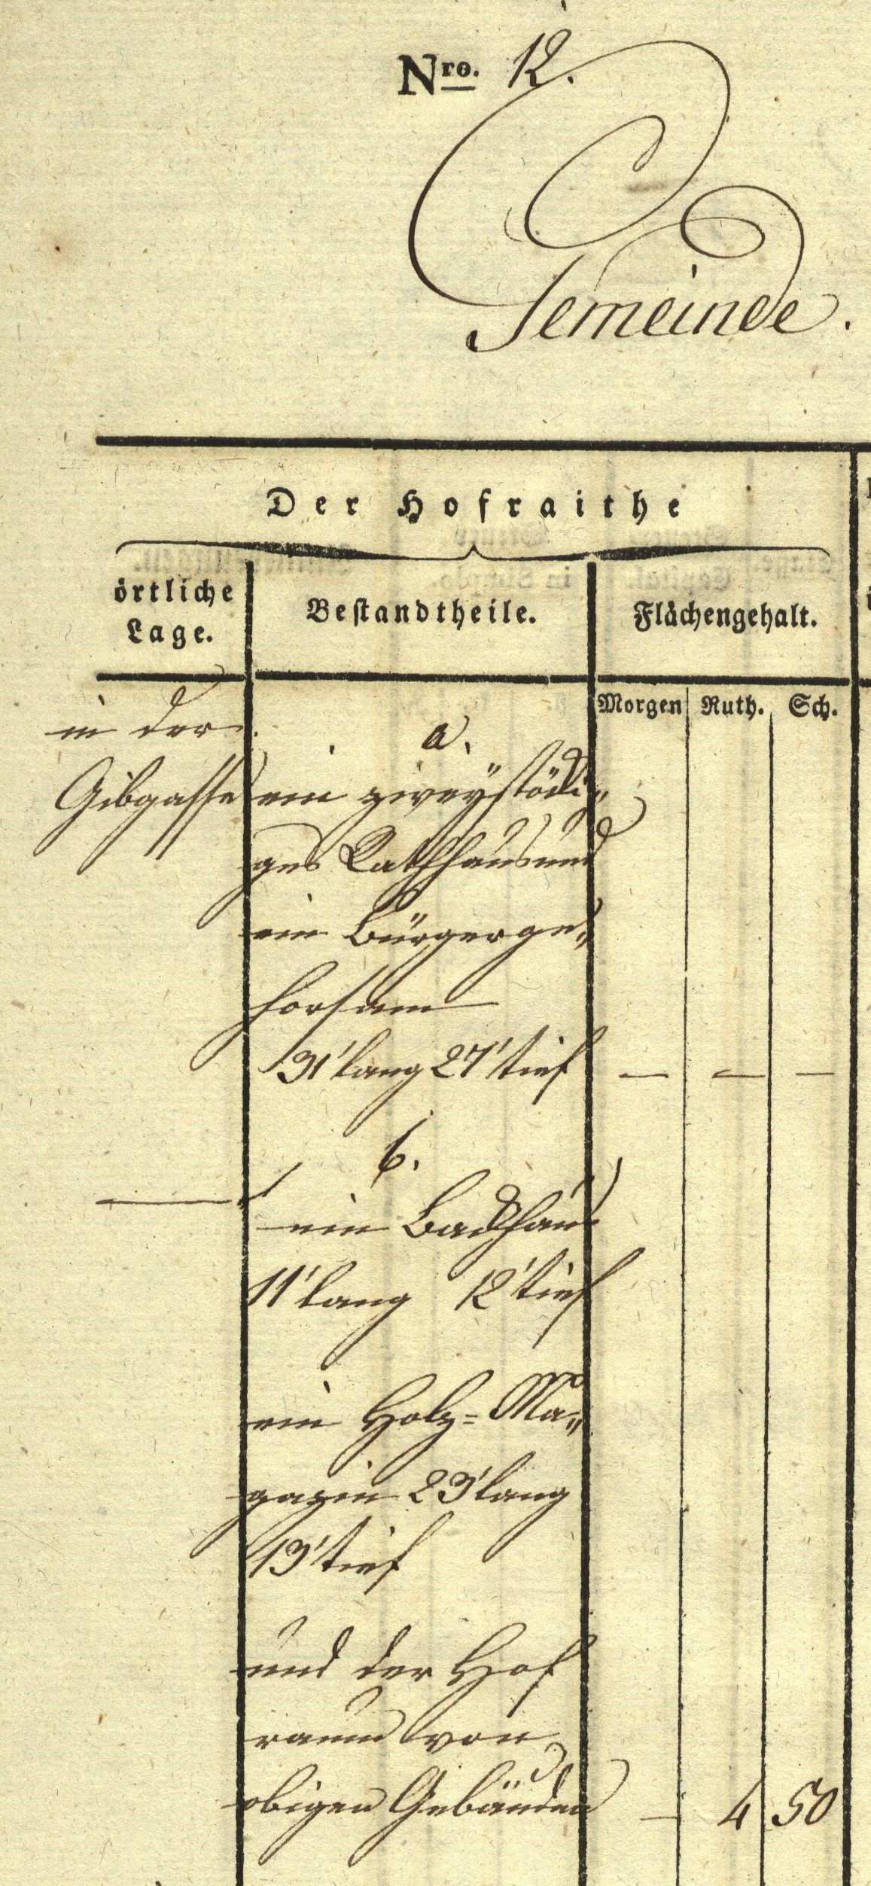 Nro. 12.
Gemeinde.
Der Hofraithe
örtliche
Lage.
Bestandtheile.
Flächengehalt.
Morgen Ruth. Sch.
in der
a.
Gibgasse ein zweystöcki„
ges Rathhaus und
ein Bürgerge„
horsam
31' lang 27' tief — — —
b.
— ein Backhaus
11' lang 12' tief
ein Holz= Ma„
gazin 23' lang
13' tief
und der Hof
raum von
obigen Gebäuden — 4 50